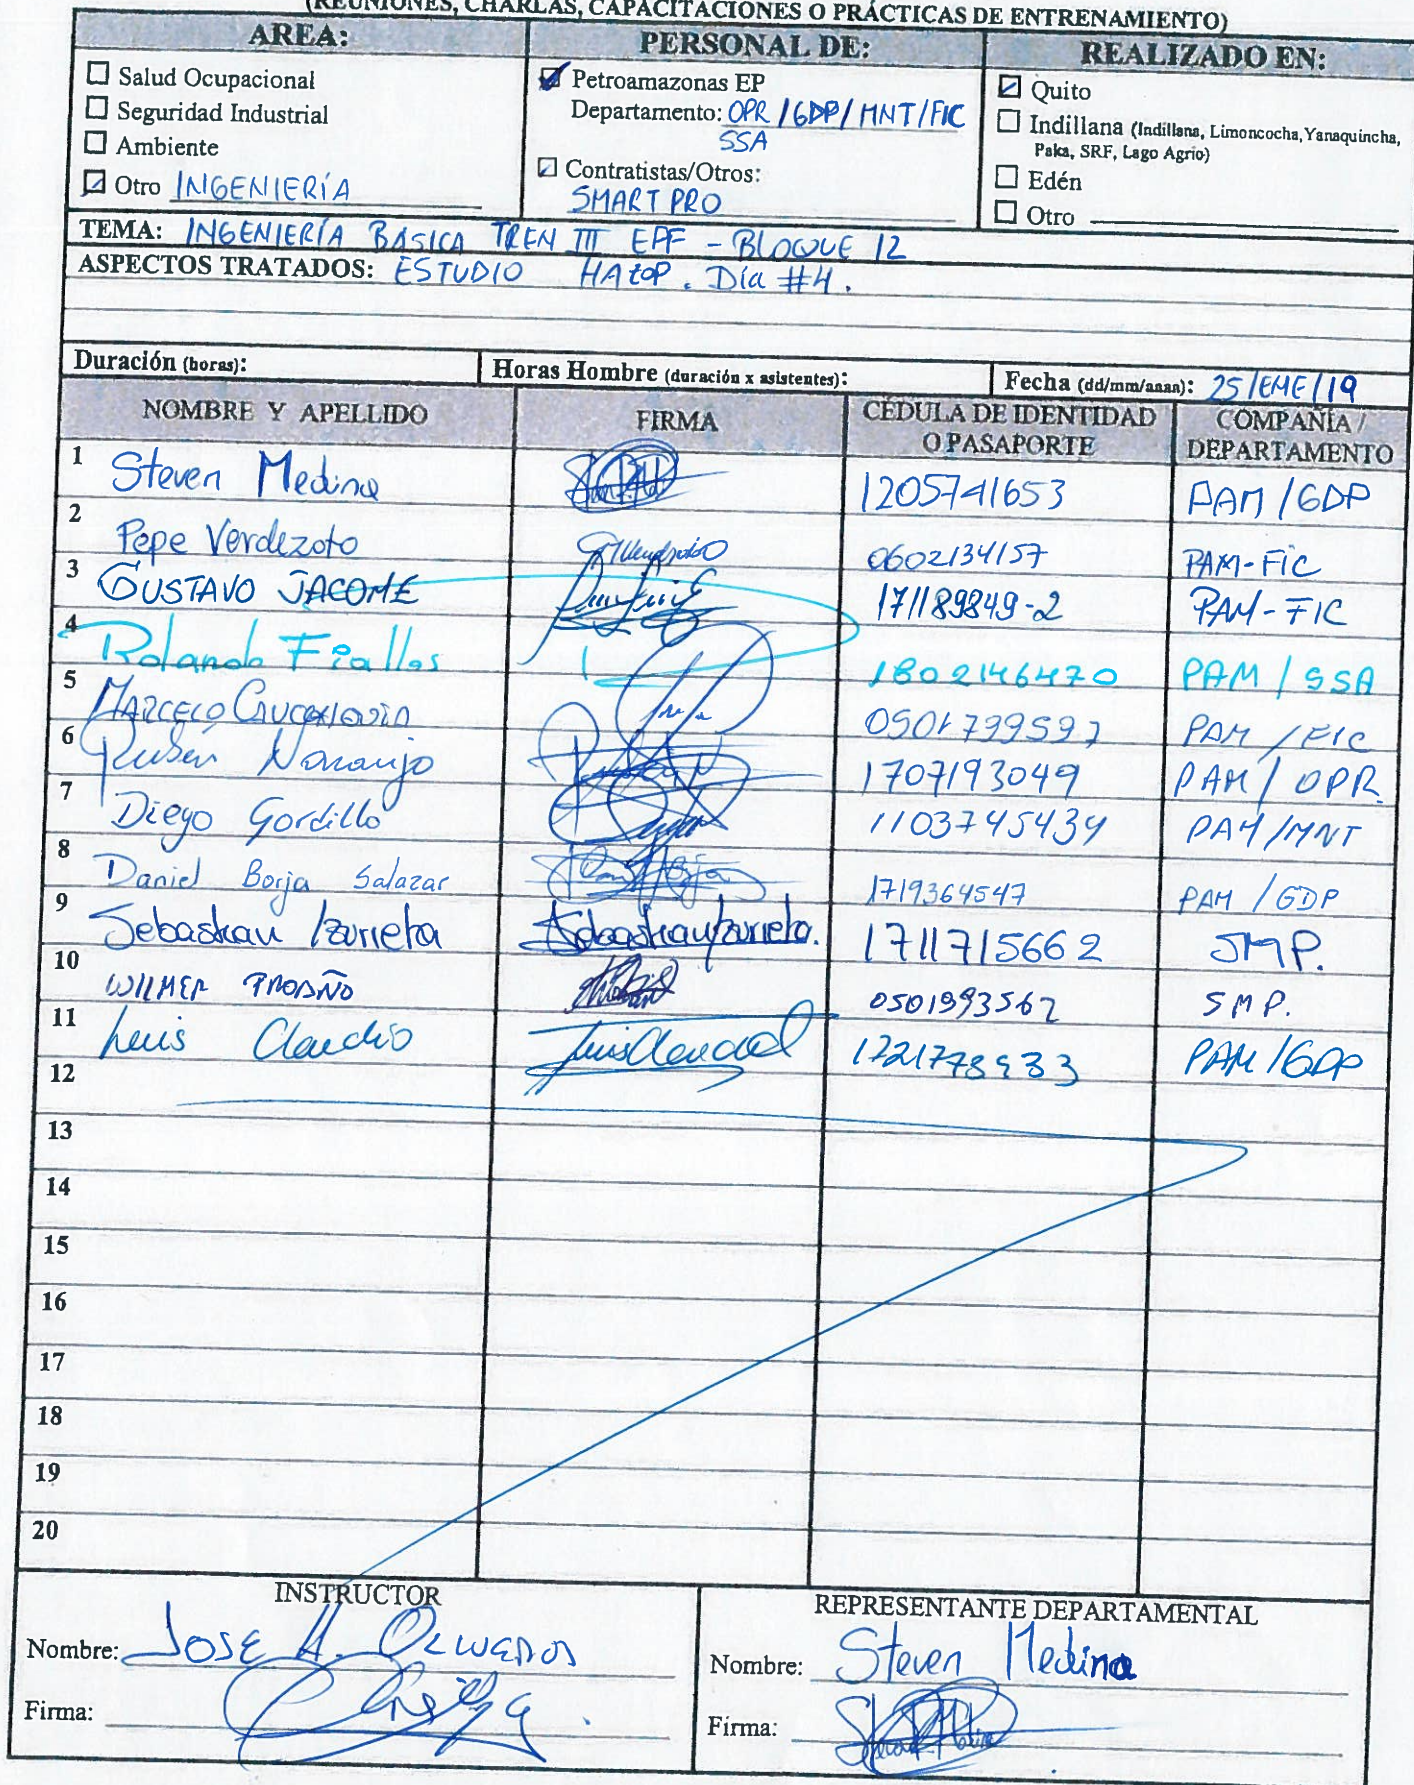 (REUNIONES, CHARLAS, CAPACITACIONES O PRÁCTICAS DE ENTRENAMIENTO)
AREA: PERSONAL DE: REALIZADO EN:
Salud Ocupacional
Seguridad Industrial
Ambiente
Otro INGENIERÍA
Petroamazonas EP
Departamento: OPR / GDP / MNT / FIC
SSA
Contratistas/Otros:
SMART PRO
Quito
Indillana (Indillana, Limoncocha, Yanaquincha,
Paka, SRF, Lago Agrio)
Edén
Otro
TEMA: INGENIERÍA BÁSICA TREN III EPF - BLOQUE 12
ASPECTOS TRATADOS: ESTUDIO . Día #4.
Duración (horas): Horas Hombre (duración x asistentes): Fecha (dd/mm/aaaa): 25/ENE/19
NOMBRE Y APELLIDO FIRMA CÉDULA DE IDENTIDAD O PASAPORTE COMPAÑÍA / DEPARTAMENTO
1 Steven Medina 1205741653 PAM / GDP
2 Pepe Verdezoto 0602134157 PAM-FIC
3 GUSTAVO JACOME 171189849-2 PAM-FIC
4 Rolando Fiallos 1802146470 PAM / SSA
5 MARCELO PAM / FIC
6 Rubén Naranjo 1707193049 PAM / OPR
7 Diego Gordillo 1103745434 PAM / MNT
8 Daniel Borja Salazar 1719364547 PAM / GDP
9 Sebastian Izurieta Sebastian Izurieta. 1711715662 SMP.
10 WILMER PROAÑO 0501993562 SMP.
11 Luis Claudio PAM / GDP
12
13
14
15
16
17
18
19
20
INSTRUCTOR
Nombre: JOSE A.
Firma:
REPRESENTANTE DEPARTAMENTAL
Nombre: Steven Medina
Firma: